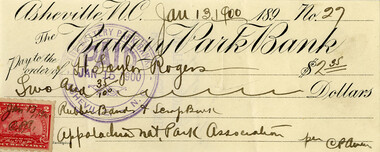 Asheville, N.C. Jan 13, 1900 189 No. 27
The Battery Park Bank
Pay to the order of H. Taylor Rogers $2.35
Two and 35/100 Dollars
Rubber Band & Scrap Book
Appalachian Nat Park Association
per